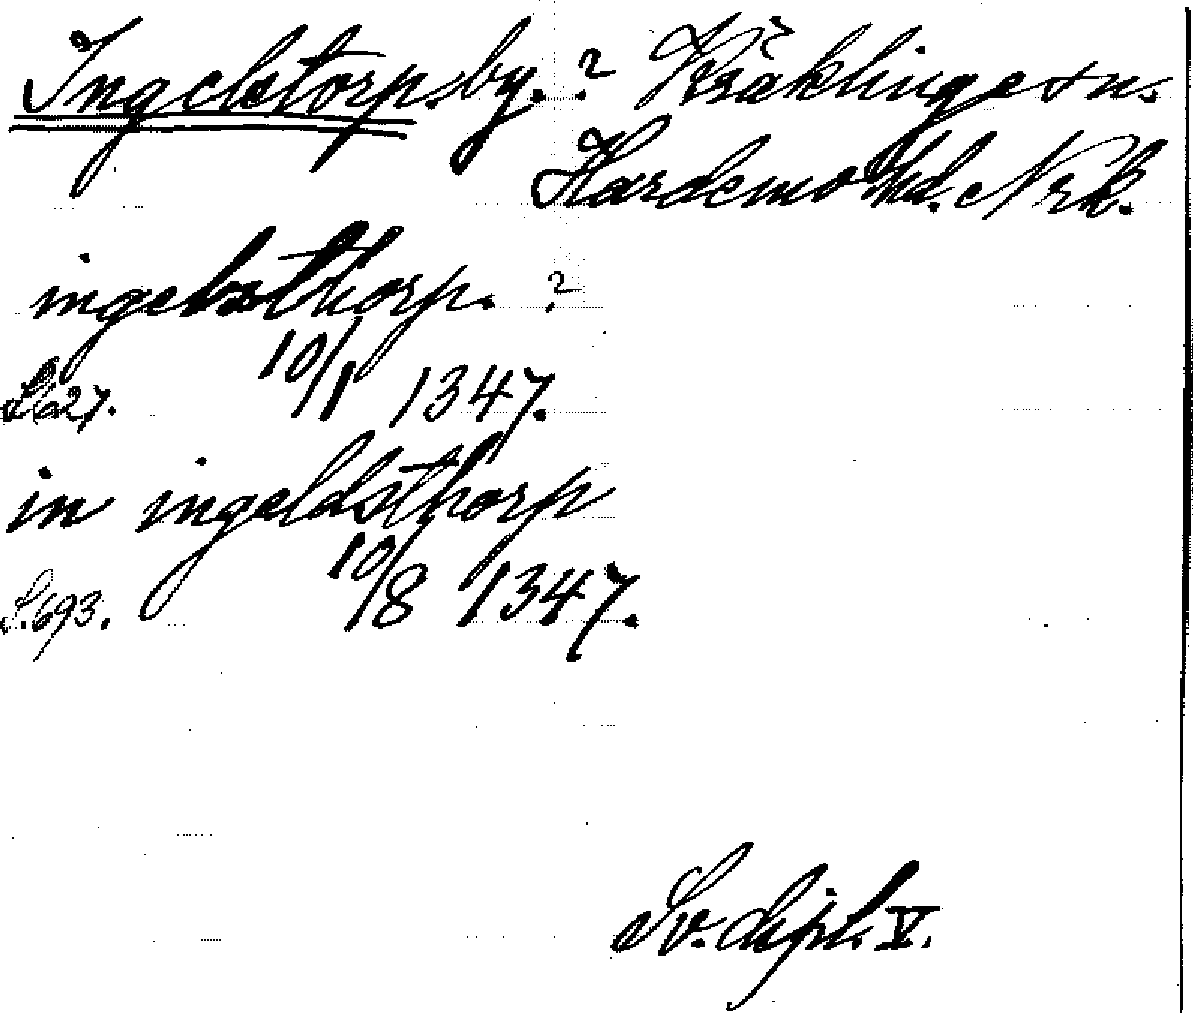 Ingelstorp. by. ? Kräklinge sn.
Hardemo hd. Nrk.
ingelzsthorp. ?
S. 627. 10/1 1347.
in ingeldsthorp
S. 693. 10/8 1347.
Sv. dipl. V.